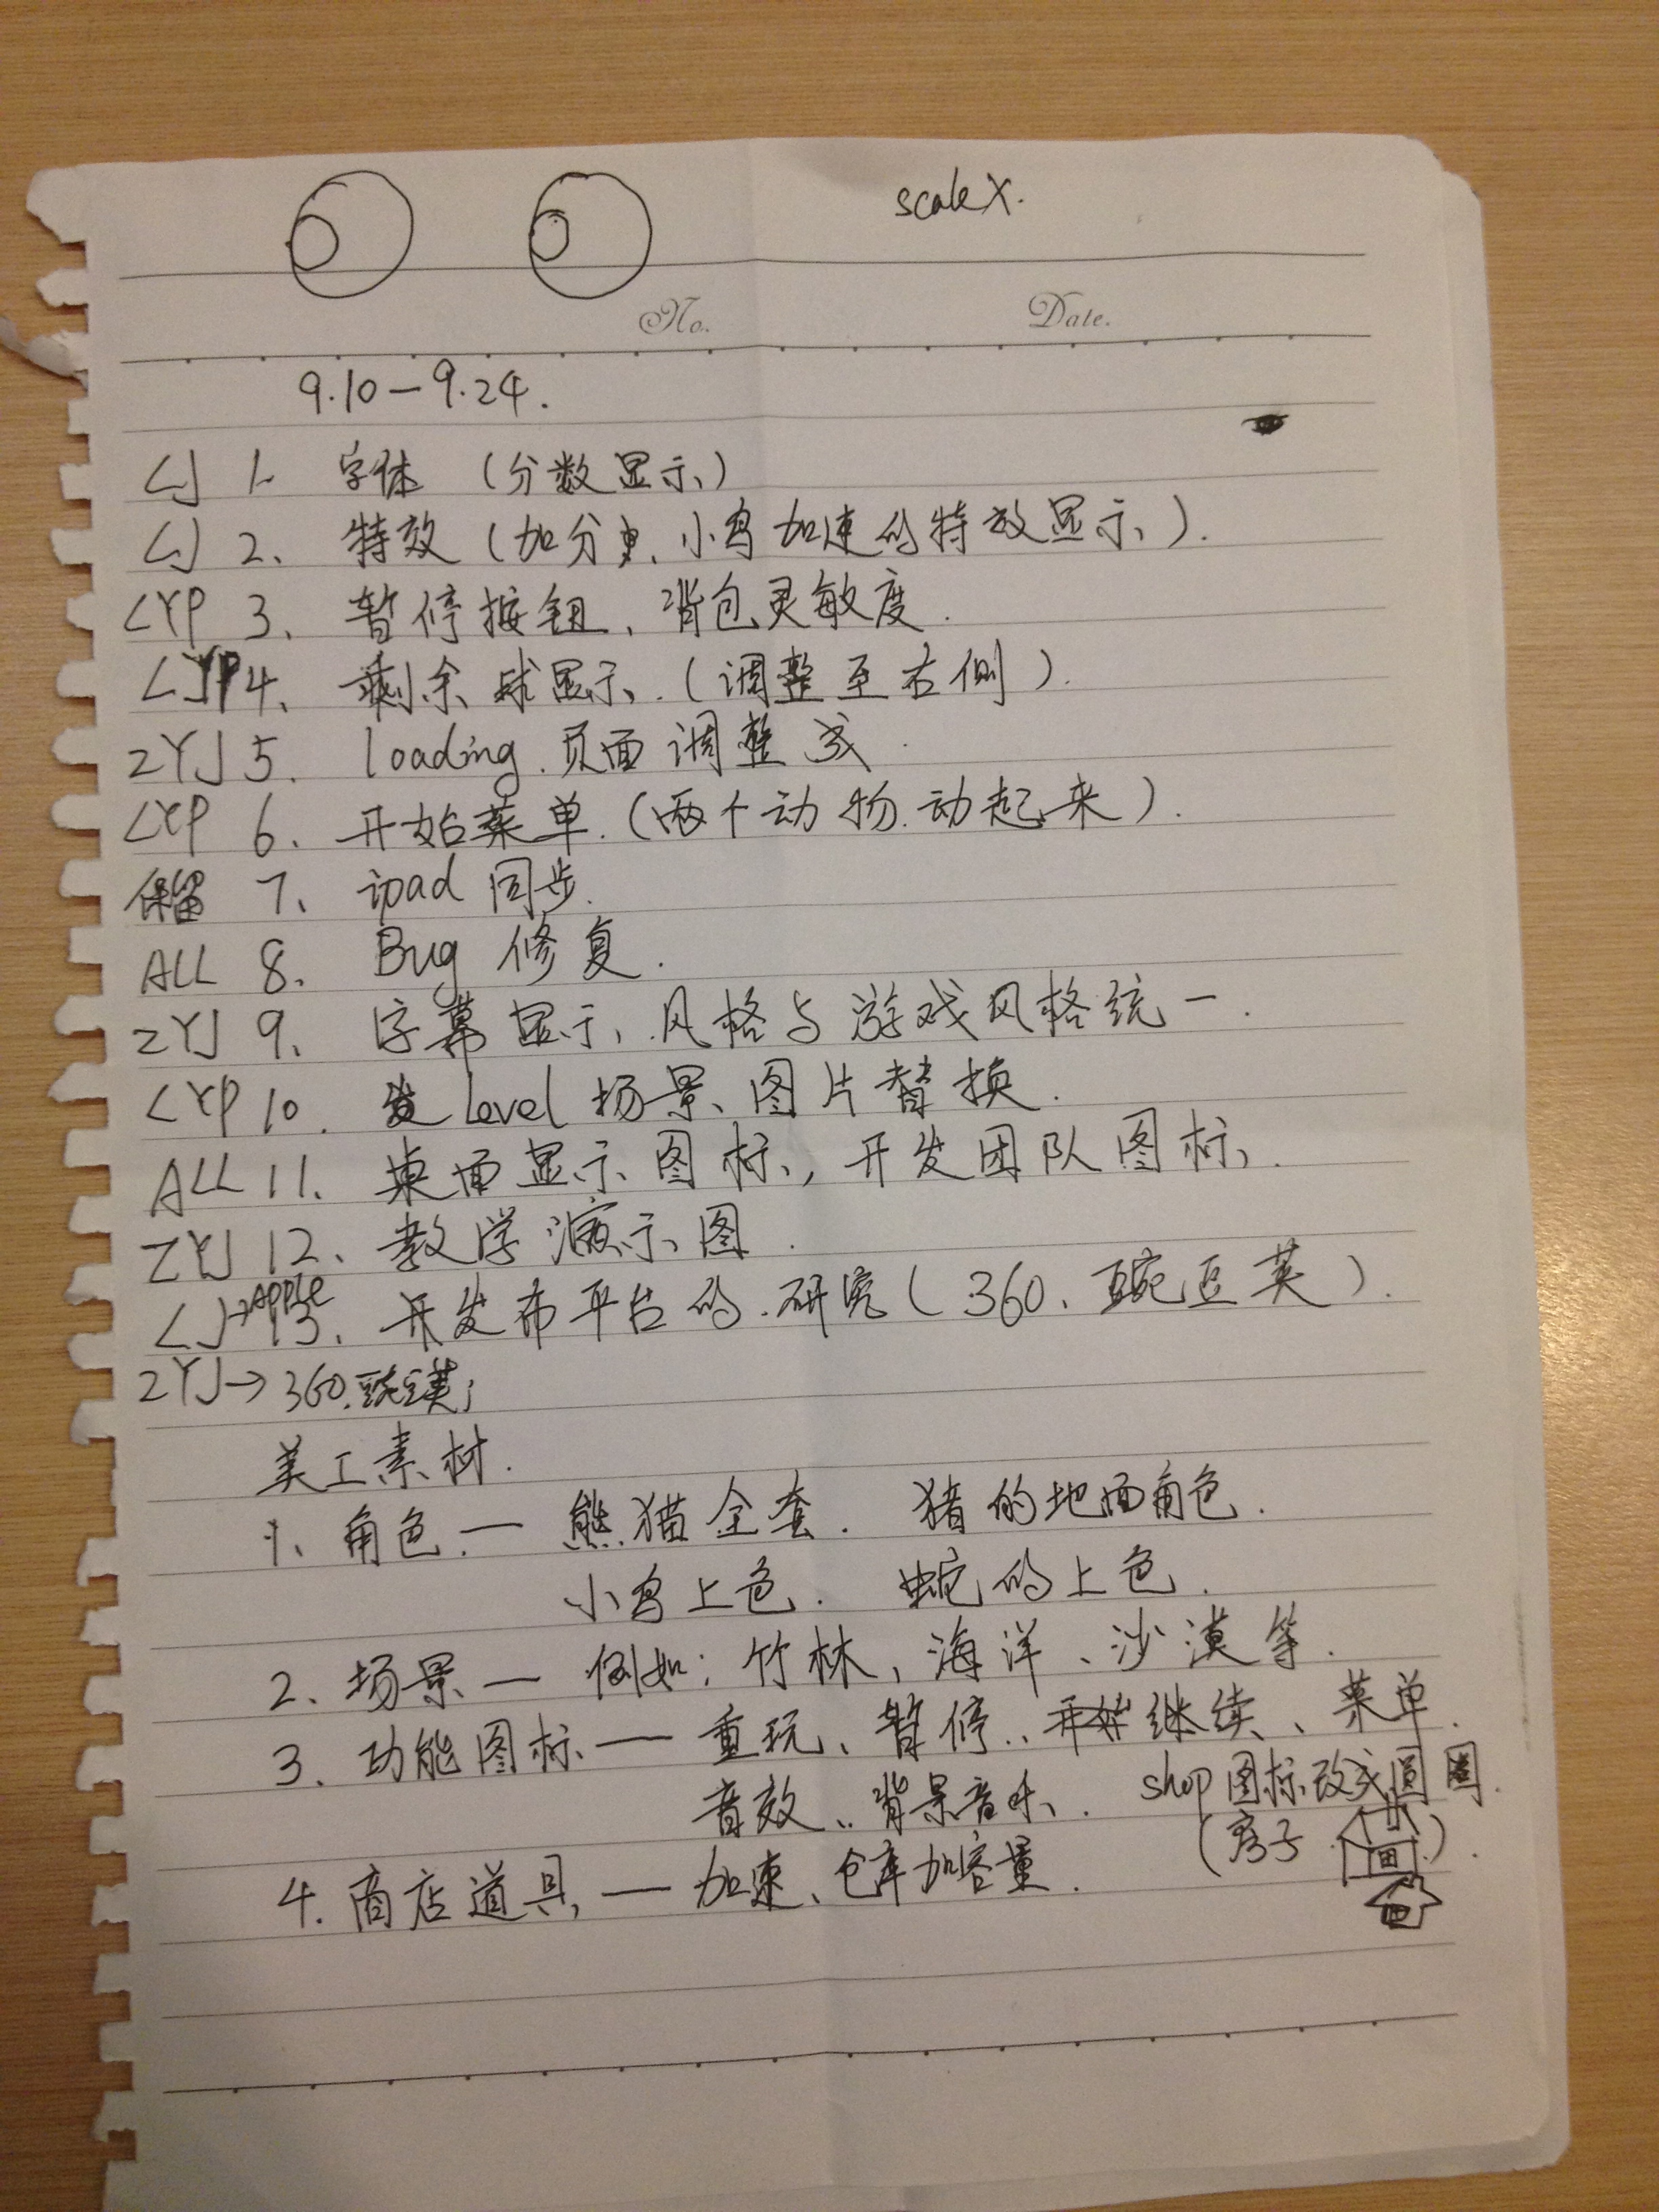 scaleX.
No. Date.
9.10-9.24.
LJ 1. 字体 (分数显示)
LJ 2、特效 (加分、小鸟加速的特效显示).
LYP 3、暂停按钮、背包灵敏度.
LYP 4、剩余球显示.(调整至右侧).
ZYJ 5. loading.页面调整
LYP 6、开始菜单.(两个动物.动起来).
保留 7、ipad 同步.
ALL 8、Bug 修复.
ZYJ 9、字幕显示、风格与游戏风格统一.
LYP 10. level 场景、图片替换.
ALL 11. 桌面显示图标, 开发团队图标.
ZYJ 12、教学演示图.
LJ→Apple 13、开发布平台的.研究(360、豌豆荚).
ZYJ→360.豌豆荚;
美工素材.
1、角色.— 熊猫全套. 猪的地面角色.
小鸟上色. 蛇的上色.
2、场景— 例如:竹林、海洋、沙漠等.
3、功能图标— 重玩、暂停、继续、菜单.
音效、背景音乐. shop图标改成圆圈.
(房子).
4.商店道具,— 加速、仓库加容量.